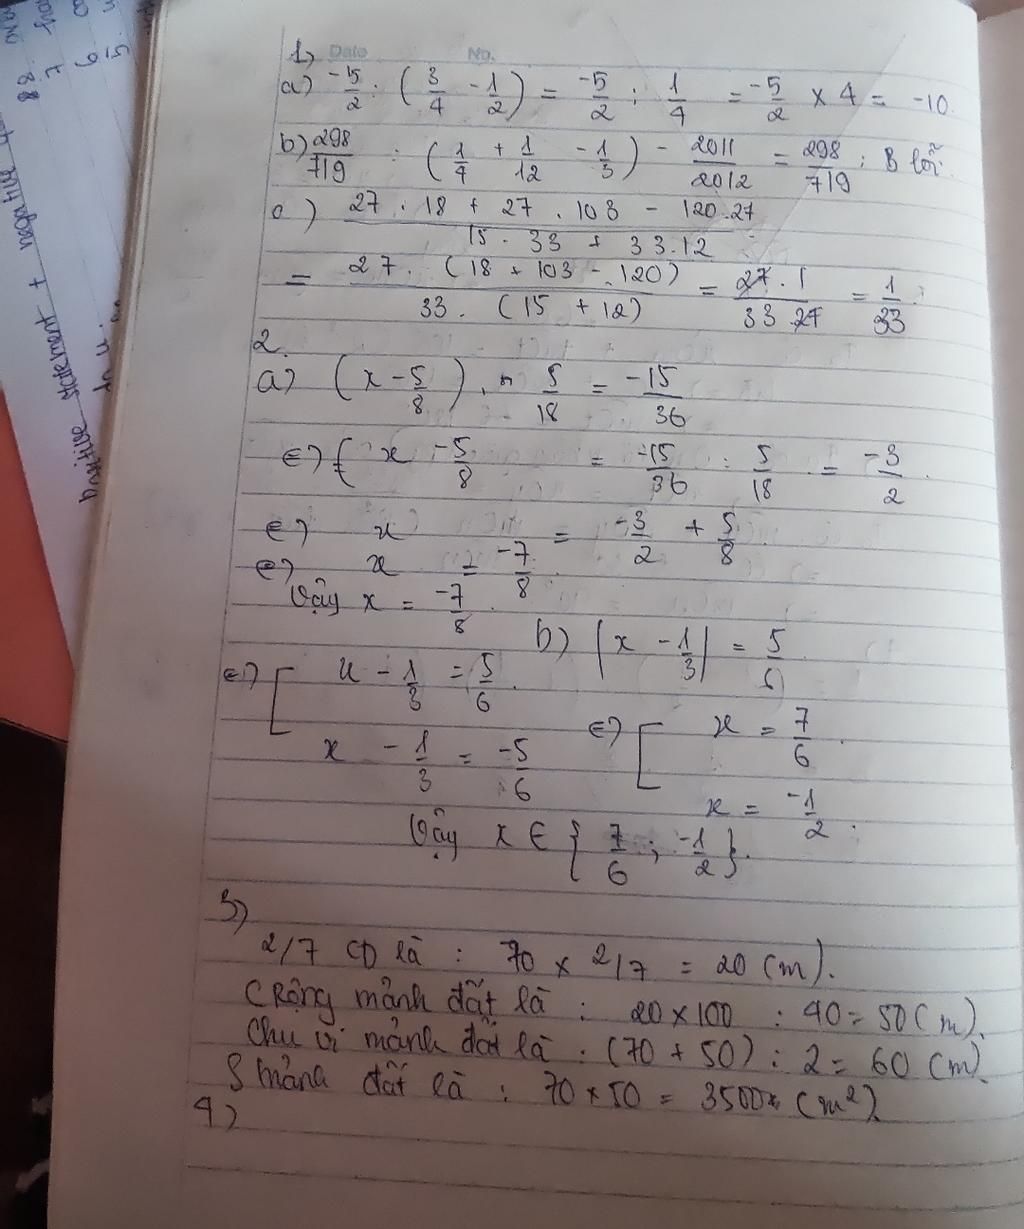 1, Date No.
a) -5/2 : (3/4 - 1/2) = -5/2 : 1/4 = -5/2 × 4 = -10.
b) 298/719 : (1/4 + 1/12 - 1/3) - 2011/2012 = 298/719 : lỗi.
c) (27 . 18 + 27 . 103 - 120.27)/(15 . 33 + 33.12)
= (27 . (18 + 103 - 120))/(33 . (15 + 12)) = (27 . 1)/(33 . 27) = 1/33
2.
a) (x - 5/8) . 5/18 = -15/36
<=> ( x - 5/8 = -15/36 : 5/18 = -3/2
<=> x = -3/2 + 5/8
<=> x = -7/8
Vậy x = -7/8.
b) |x - 1/3| = 5/6
<=> [ x - 1/3 = 5/6
x - 1/3 = -5/6
<=> [ x = 7/6
x = -1/2.
Vậy x ∈ {7/6 ; -1/2}.
3)
2/7 CD là : 70 × 2/7 = 20 (m).
CRộng mảnh đất là : 20 × 100 : 40 = 50 (m).
Chu vi mảnh đất là : (70 + 50) : 2 = 60 (m).
S mảnh đất là : 70 × 50 = 3500 (m²).
4)
statement + negative